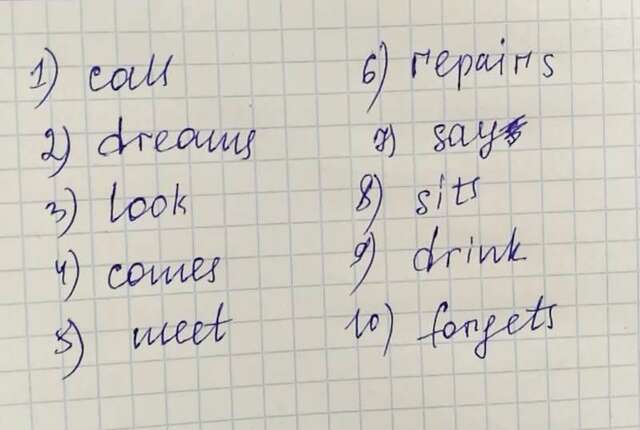 1) call
2) dreams
3) look
4) comes
5) meet
6) repairs
7) say
8) sits
9) drink
10) forgets